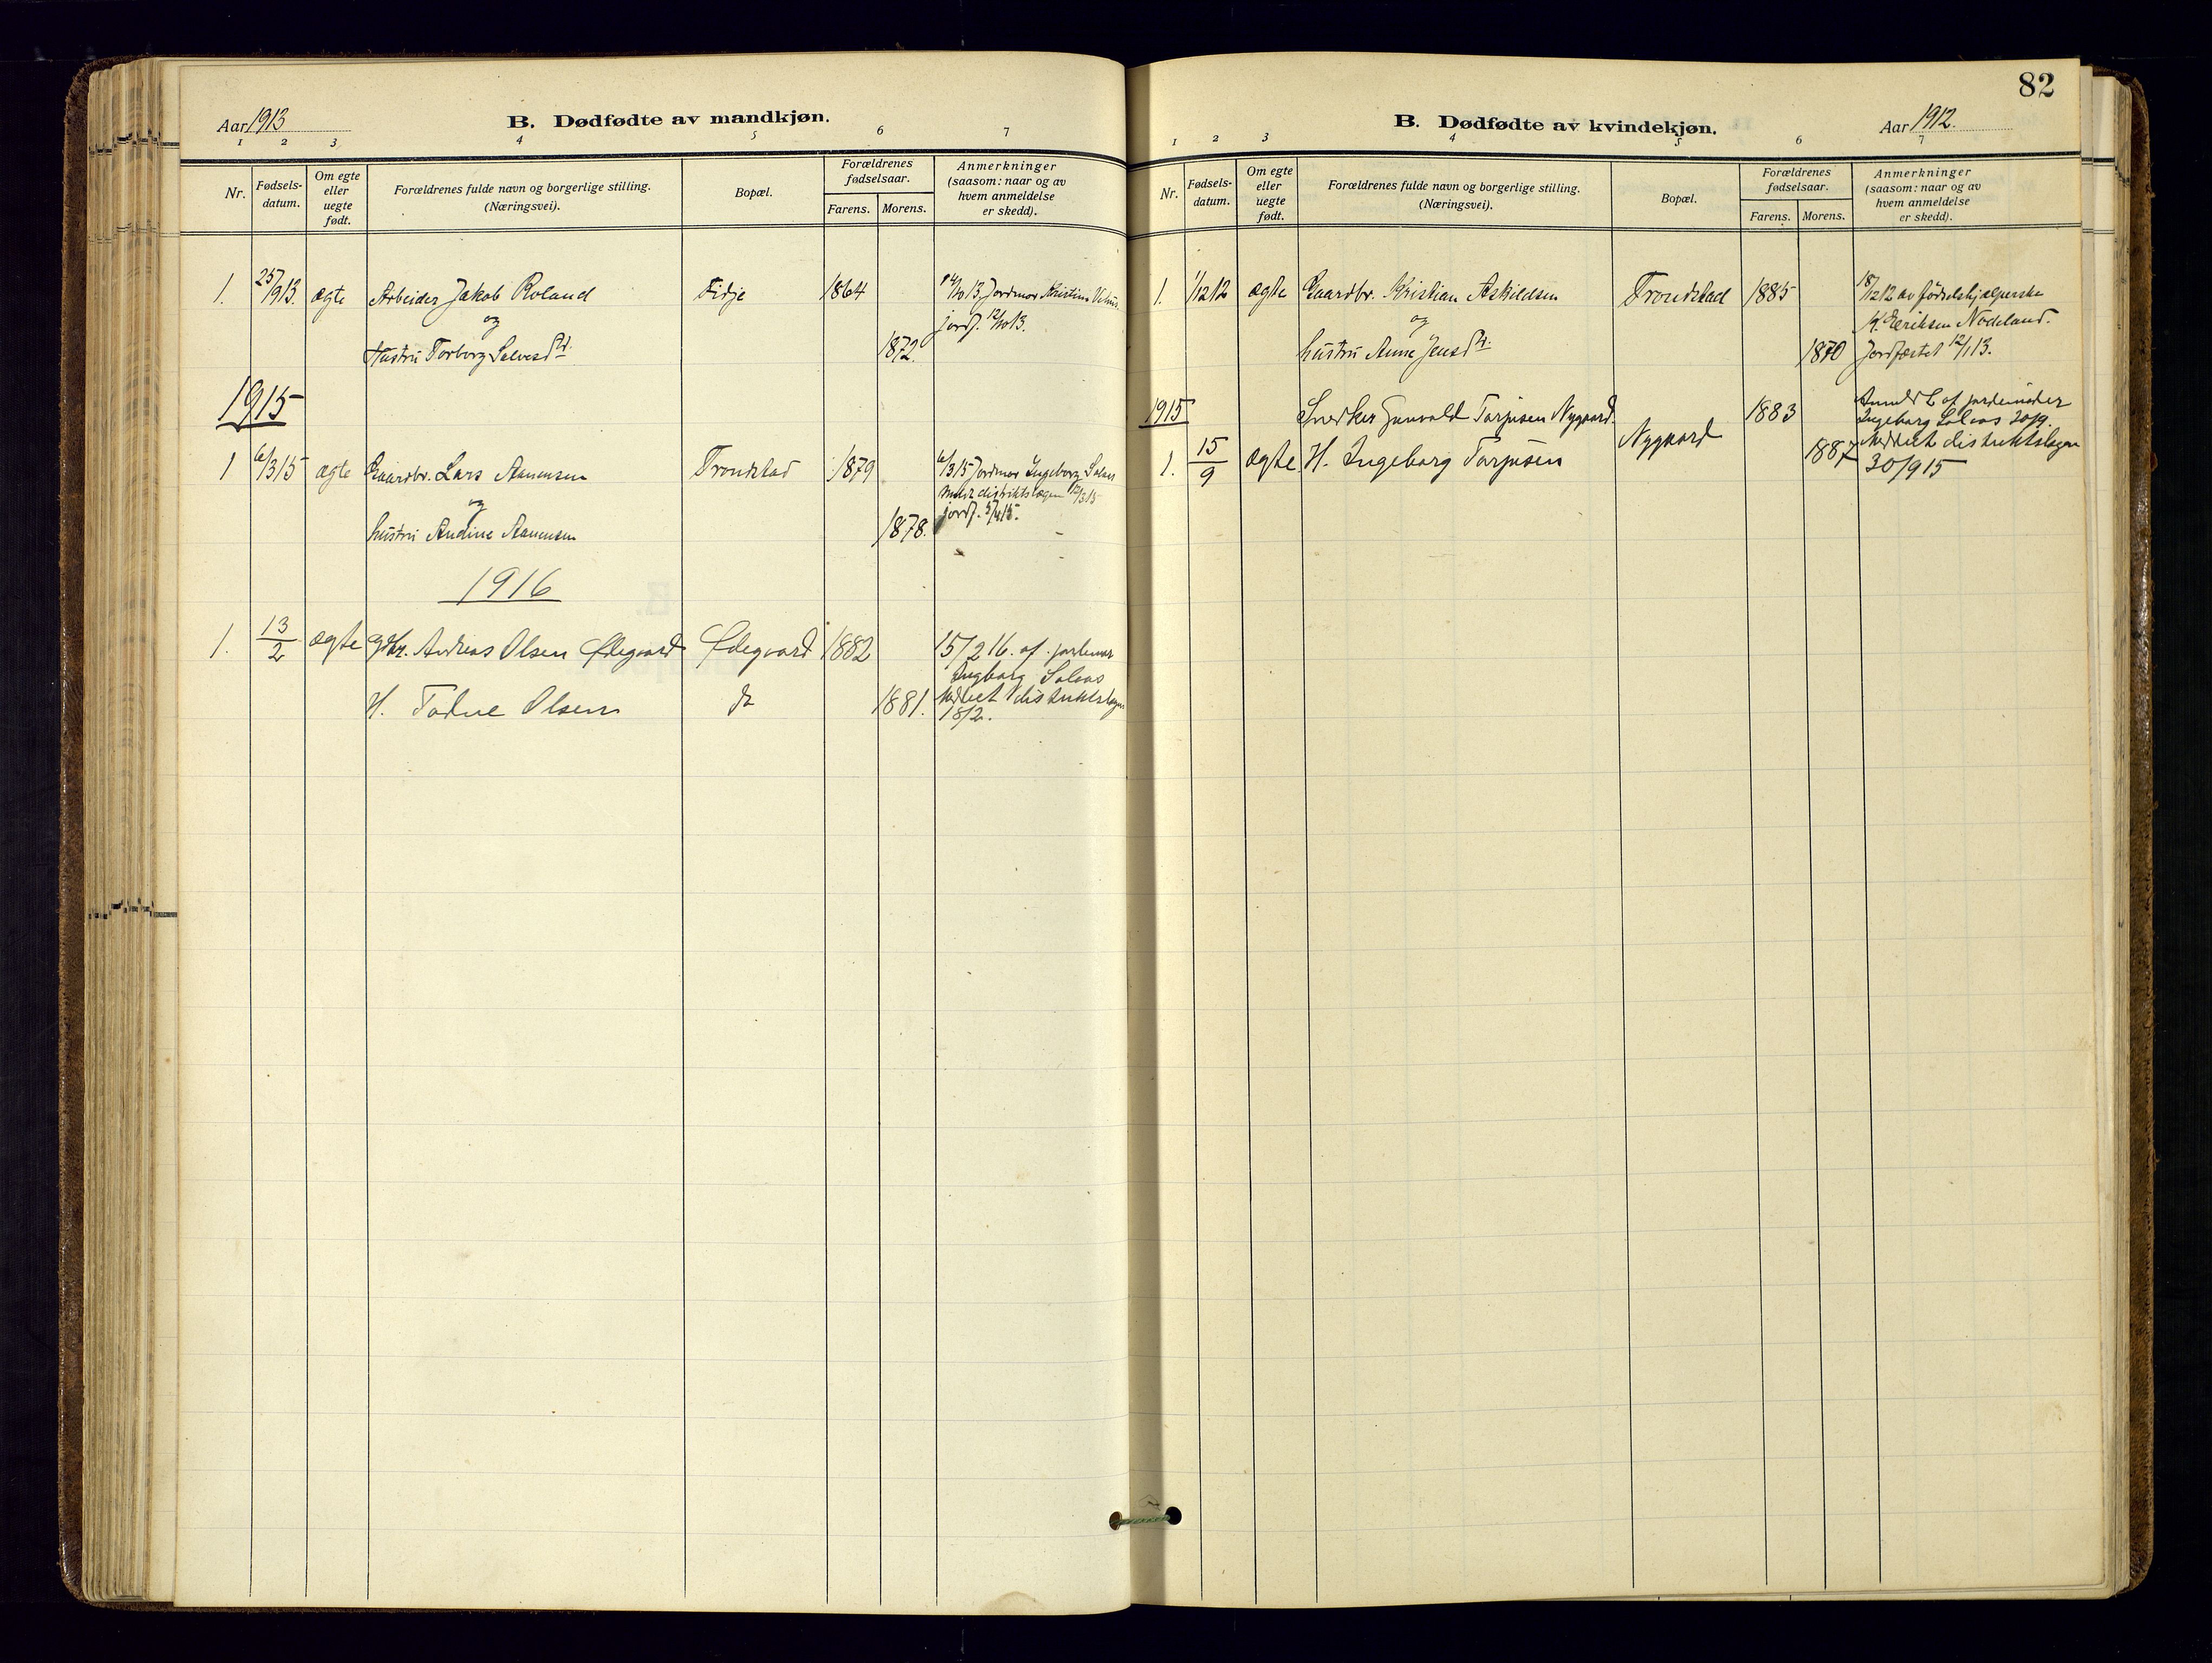 Aar 1913
B. Dødfødte av mandkjøn.
1 2 3 4 5 6 7
Nr.
Fødsels-
datum.
Om egte
eller
uegte
født.
Forældrenes fulde navn og borgerlige stilling.
(Næringsvei).
Bopæl.
Forældrenes
fødselsaar.
Farens. Morens.
Anmerkninger
(saasom: naar og av
hvem anmeldelse
er skedd).
1. 25/9 13. ægte Arbeider Jakob Roland Eidje 1864 14/10 13 Jordmor Kristine
og jordf. 12/10 13.
Hustru Torborg Salvesdtr. 1872.
1915
1 6/3 15 ægte Gaardbr. Lars Aanensen Trondstad 1879 6/3 15 Jordmor Ingeborg Solaas
meldt distriktslægen 12/3 15
og jordf. 5/4 15.
hustru Andine Aanensen 1878.
1916
1. 13/2 ægte gdbr. Andreas Olsen Ødegaard Ødegaard 1882 15/2 16. af jordemor
Ingeborg Solaas
H. Todne Olsen do 1881. Meldt distriktslægen
18/2.
82
B. Dødfødte av kvindekjøn.
Aar 1912.
1 2 3 4 5 6 7
Nr.
Fødsels-
datum.
Om egte
eller
uegte
født.
Forældrenes fulde navn og borgerlige stilling.
(Næringsvei).
Bopæl.
Forældrenes
fødselsaar.
Farens. Morens.
Anmerkninger
(saasom: naar og av
hvem anmeldelse
er skedd).
1. 1/12 12 ægte Gaardbr. Kristian Askildsen Trondstad 1885 18/12 12 av fødselshjælperske
og K. Eriksen Nodeland.
hustru Anne Jensdtr. 1870 Jordfæstet 12/1 13.
1915 Snedker Gunvald Torjusen Nygaard. 1883 Anmeldt af jordemoder
Ingeborg Solaas 20/9.
1. 15/9 ægte H. Ingeborg Torjusen Nygaard 1887 Meddelt distriktslægen
30/9 15